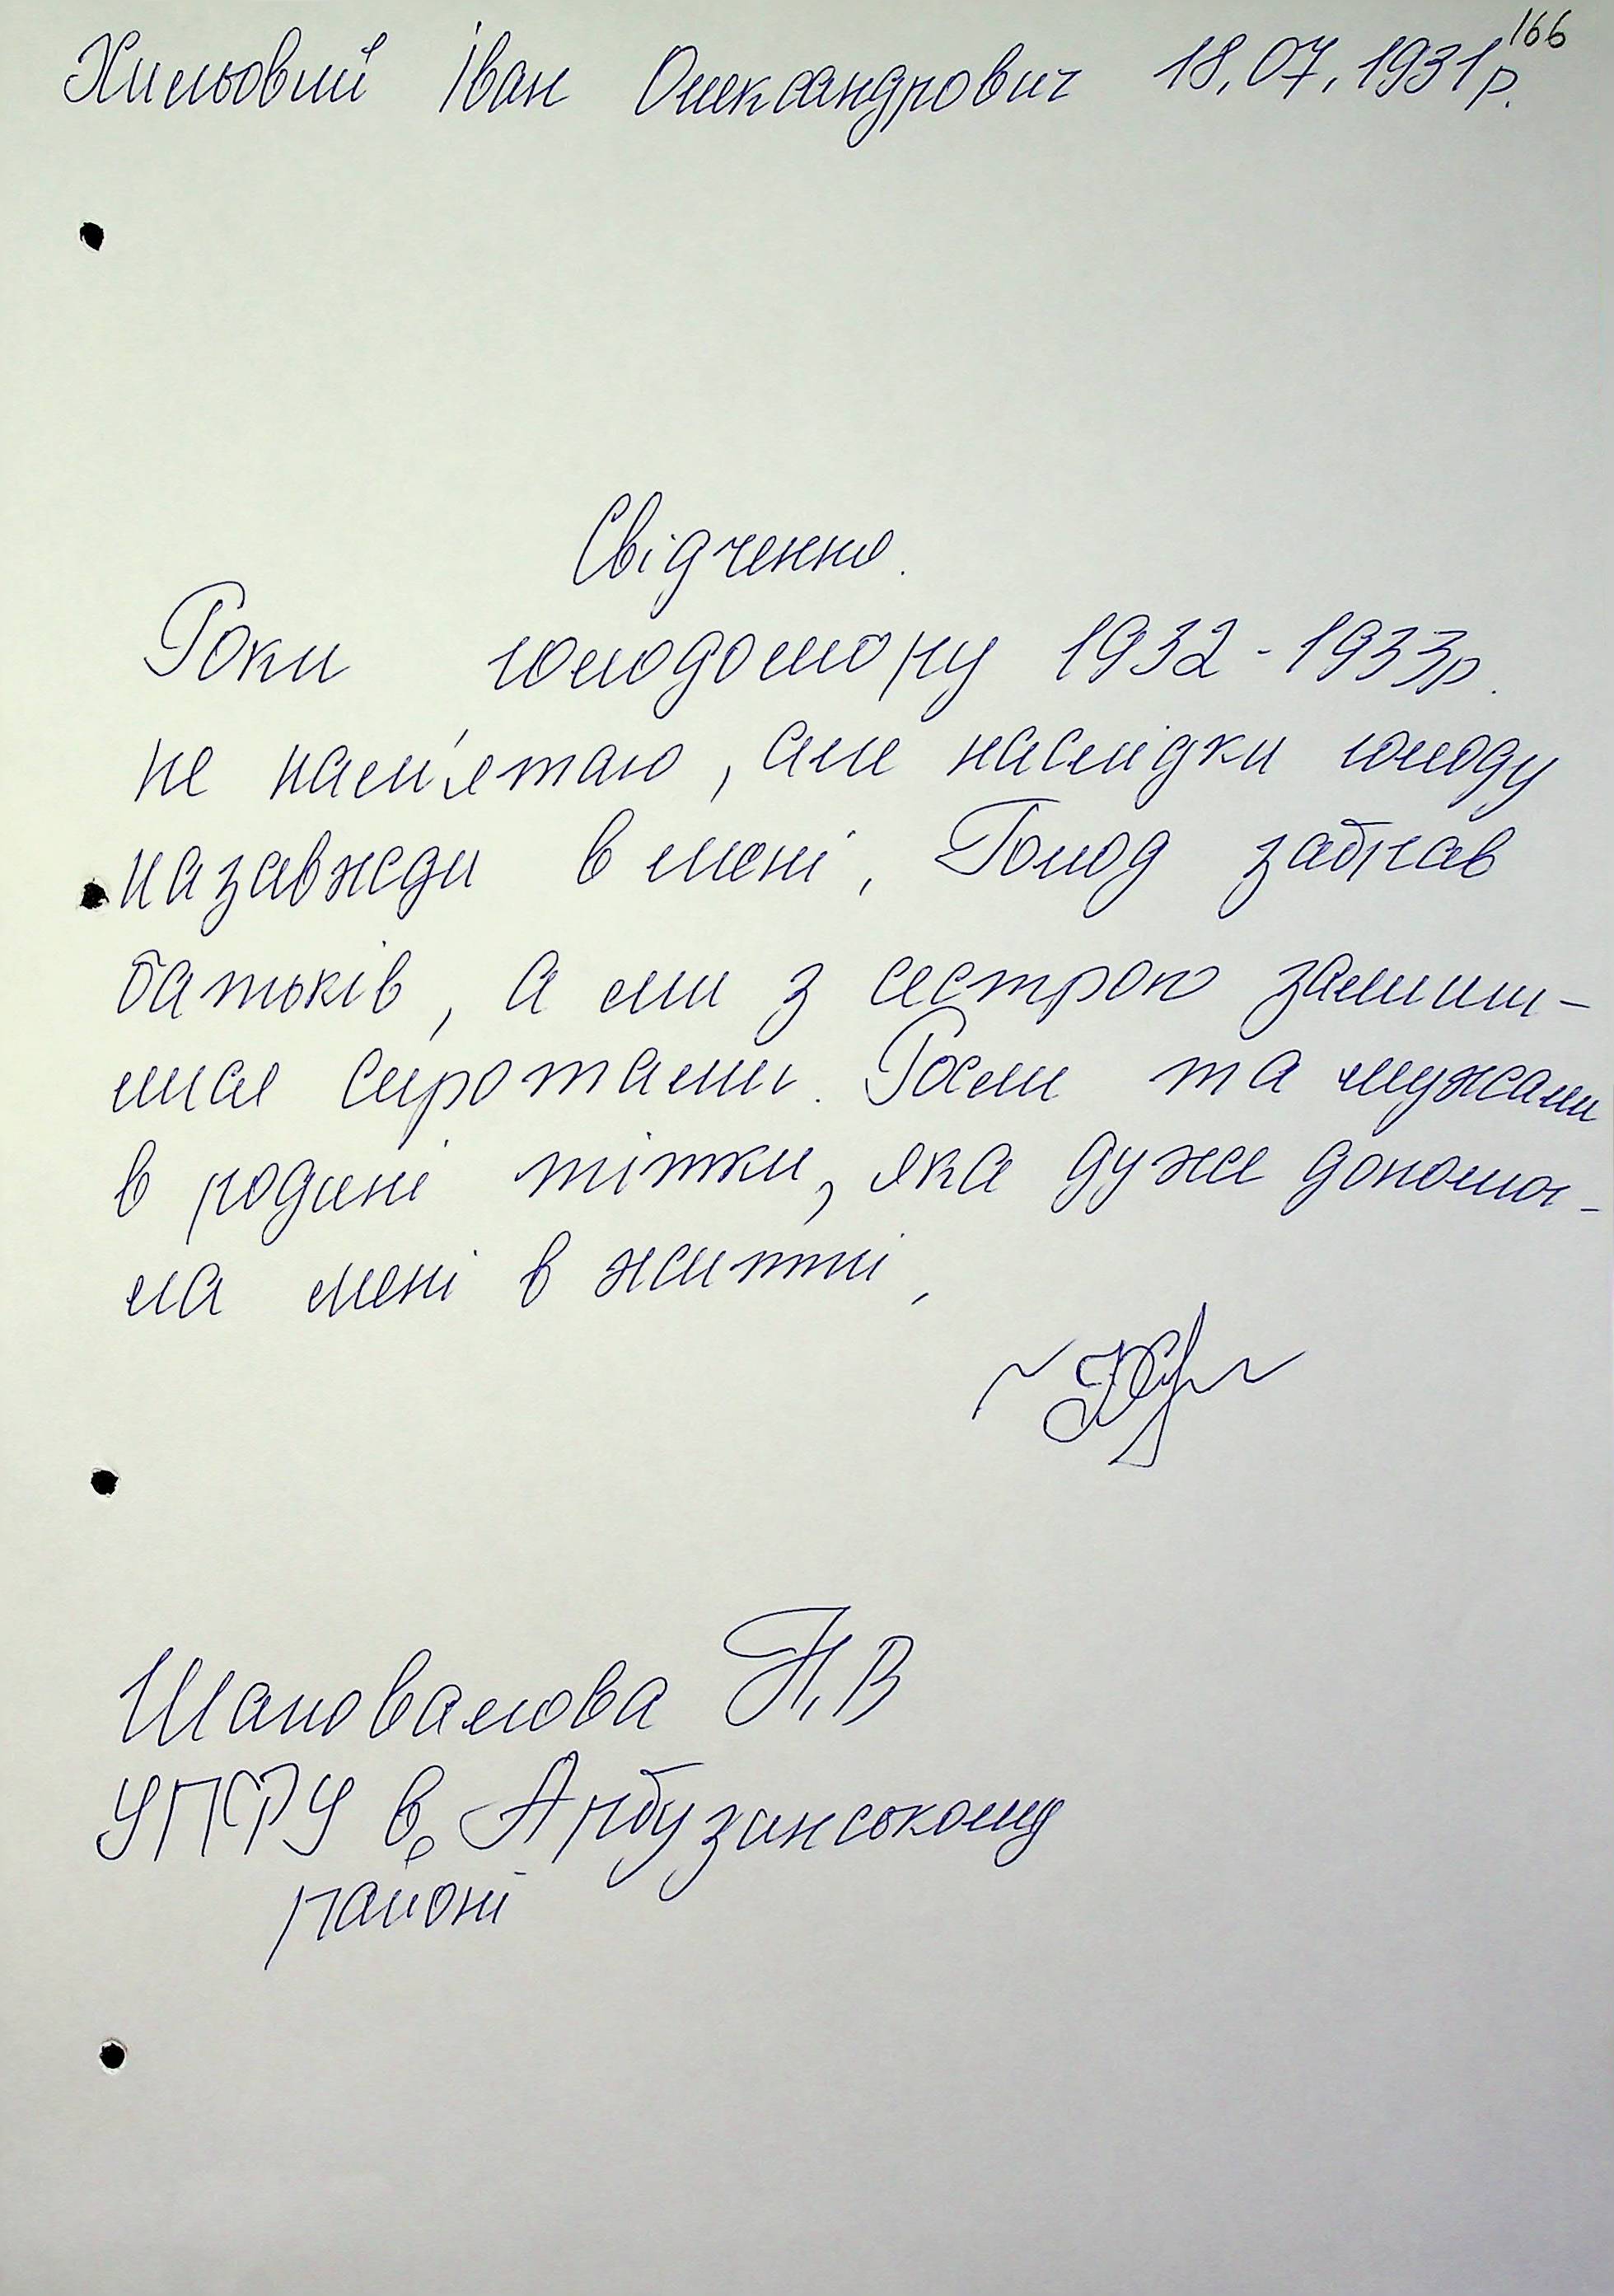 166
Хильовий Іван Олександрович 18.07.1931р.
Свідчення.
Роки голодомору 1932-1933р.
не пам'ятаю, але наслідки голоду
назавжди в мені. Голод забрав
батьків, а ми з сестрою залиши-
лися сиротами. Росли та мужали
в родині тітки, яка дуже допомог-
ла мені в житті.
Шаповалова Н.В
УПФУ в Арбузинському
районі